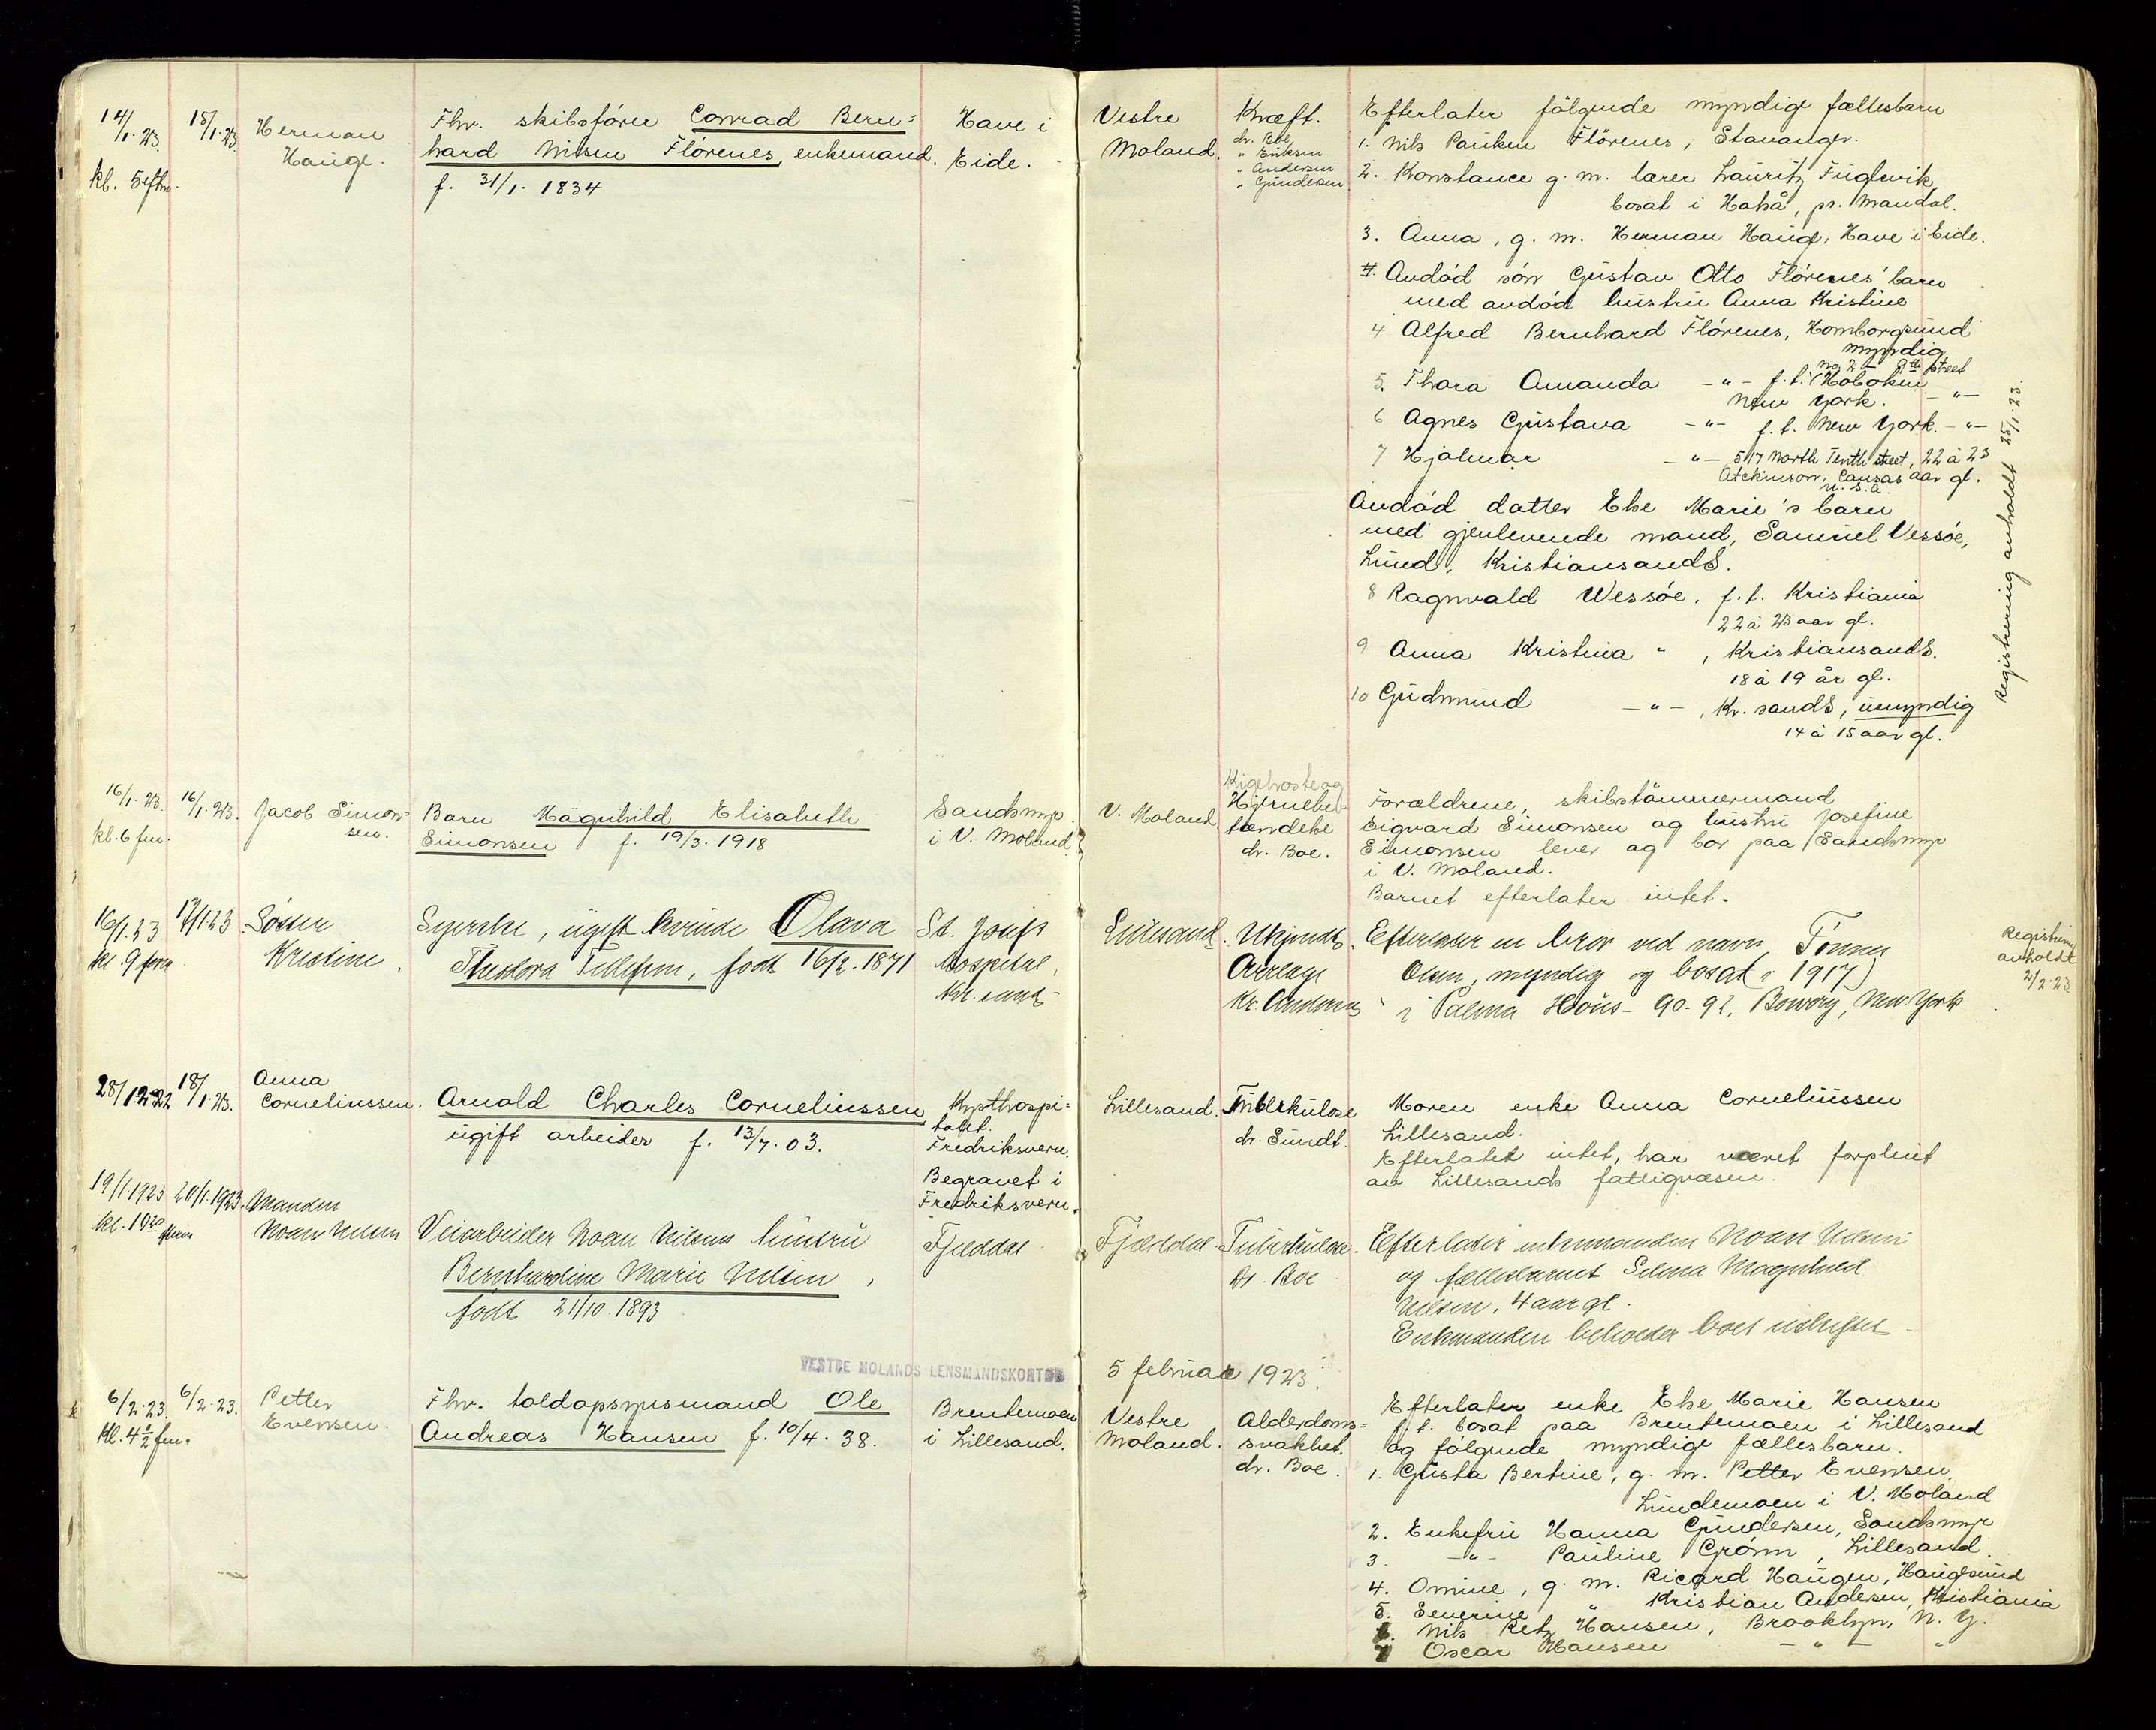 14/1.23.
kl. 5 efth.
15/1.23.
Herman
Hauge.
Fhv. skibsfører Conrad Bern-
hard Nilsen Flørenes, enkemand.
f. 31/1. 1834
Have i
Eide.
Vestre
Moland.
Kræft.
dr. Boe
" Eriksen
" Andersen
" Gundersen
Efterlater følgende myndige fællesbarn
1. Nils Paulien Flørenes, Stavanger.
2. Konstance g. m. lærer Lauritz Fuglevik,
bosat i Halså, pr. Mandal.
3. Anna, g. m. Herman Hauge, Have i Eide.
4. Avdød søn Gustav Otto Flørenes' barn
med avdød hustru Anna Kristine
4 Alfred Bernhard Flørenes, Homborgsund
myndig
5. Thora Amanda -"- f.t. Hoboken
New York. -"-
6 Agnes Gustava -"- f.t. New York. -"-
7 Hjalmar -"- 517 North Tenth street, 22 à 23
Atckinson, Cansas aar gl.
U.S.A.
Avdød datter Else Marie's barn
med gjenlevende mand, Samuel Vessøe,
Lund, KristiansandS.
8 Ragnvald Wessøe. f.t. Kristiania
22 à 23 aar gl.
9 Anna Kristina " , KristiansandS.
18 à 19 år gl.
10 Gudmund -"- , Kr.sandS, umyndig
14 à 15 aar gl.
Registrering avholdt 25/1.23.
16/1.23.
kl. 6 fm.
16/1.23.
Jacob Simon-
sen.
Barn Magnhild Elisabeth
Simonsen f. 19/3.1918
Sandsmyr
i V. Moland.
V. Moland
Kighoste og
Hjernebe-
tendelse
dr. Boe.
Forældrene, skibstømmermand
Sigvard Simonsen og hustru Josefine
Simonsen lever og bor paa Sandsmyr
i V. Moland.
Barnet efterlater intet.
16/1.23
kl. 9 form
17/1.23.
Søster
Kristine.
Syerske, ugift kvinde Olava
Theodora Tellefsen, født 16/2.1871
St. Josefs
hospital,
Kr.sand
Lillesand.
Ukjendt.
Efterlater en bror ved navn Tønnes
Olsen, myndig og bosat (i 1917)
i Palma Hous - 90-92, Bowery, New York
Registrering
avholdt
2/2.23
28/12-22
18/1.23.
Anna
Corneliussen.
Arnold Charles Corneliussen
ugift arbeider f. 13/7.03.
Kysthospi-
talet.
Fredriksvern.
Begravet i
Fredriksvern.
Lillesand.
Tuberkulose
dr. Sundt.
Moren enke Anna Corneliussen
Lillesand.
Efterlatet intet, har været forpleiet
av Lillesands fattigvæsen.
19/1.1923
kl. 10 20 form
20/1.1923.
Manden
Noan Nilsen
Veiarbeider Noan Nilsens hustru
Bernhardine Marie Nilsen,
født 21/10.1893
Fjelddal
Fjelddal.
Tuberkulose.
Dr. Boe
Efterlater enkemanden Noan Nilsen
og fællesbarnet Selma Magnhild
Nilsen, 4 aar gl.
Enkemanden beholder boet uskiftet
VESTRE MOLANDS LENSMANDSKONTOR
5 februar 1923.
6/2.23.
kl. 4½ fm.
6/2.23.
Petter
Evensen.
Fhv. toldopsynsmand Ole
Andreas Hansen f. 10/4.38.
Brentemoen
i Lillesand.
Vestre
Moland.
Alderdoms-
svakhet.
dr. Boe.
Efterlater enke Else Marie Hansen
f.t. bosat paa Brentemoen i Lillesand
og følgende myndige fællesbarn.
1. Gusta Bertine, g. m. Petter Evensen,
Lundemoen i V. Moland
2. Enkefru Hanna Gundersen, Sandsmyr
3. -"- Pauline Grønn, Lillesand.
4. Omine, g. m. Ricard Haugen, Haugesund
5. Severine " Kristian Andersen, Kristiania
6. Nils Retz Hansen, Brooklyn, N.Y.
7 Oscar Hansen -"- "